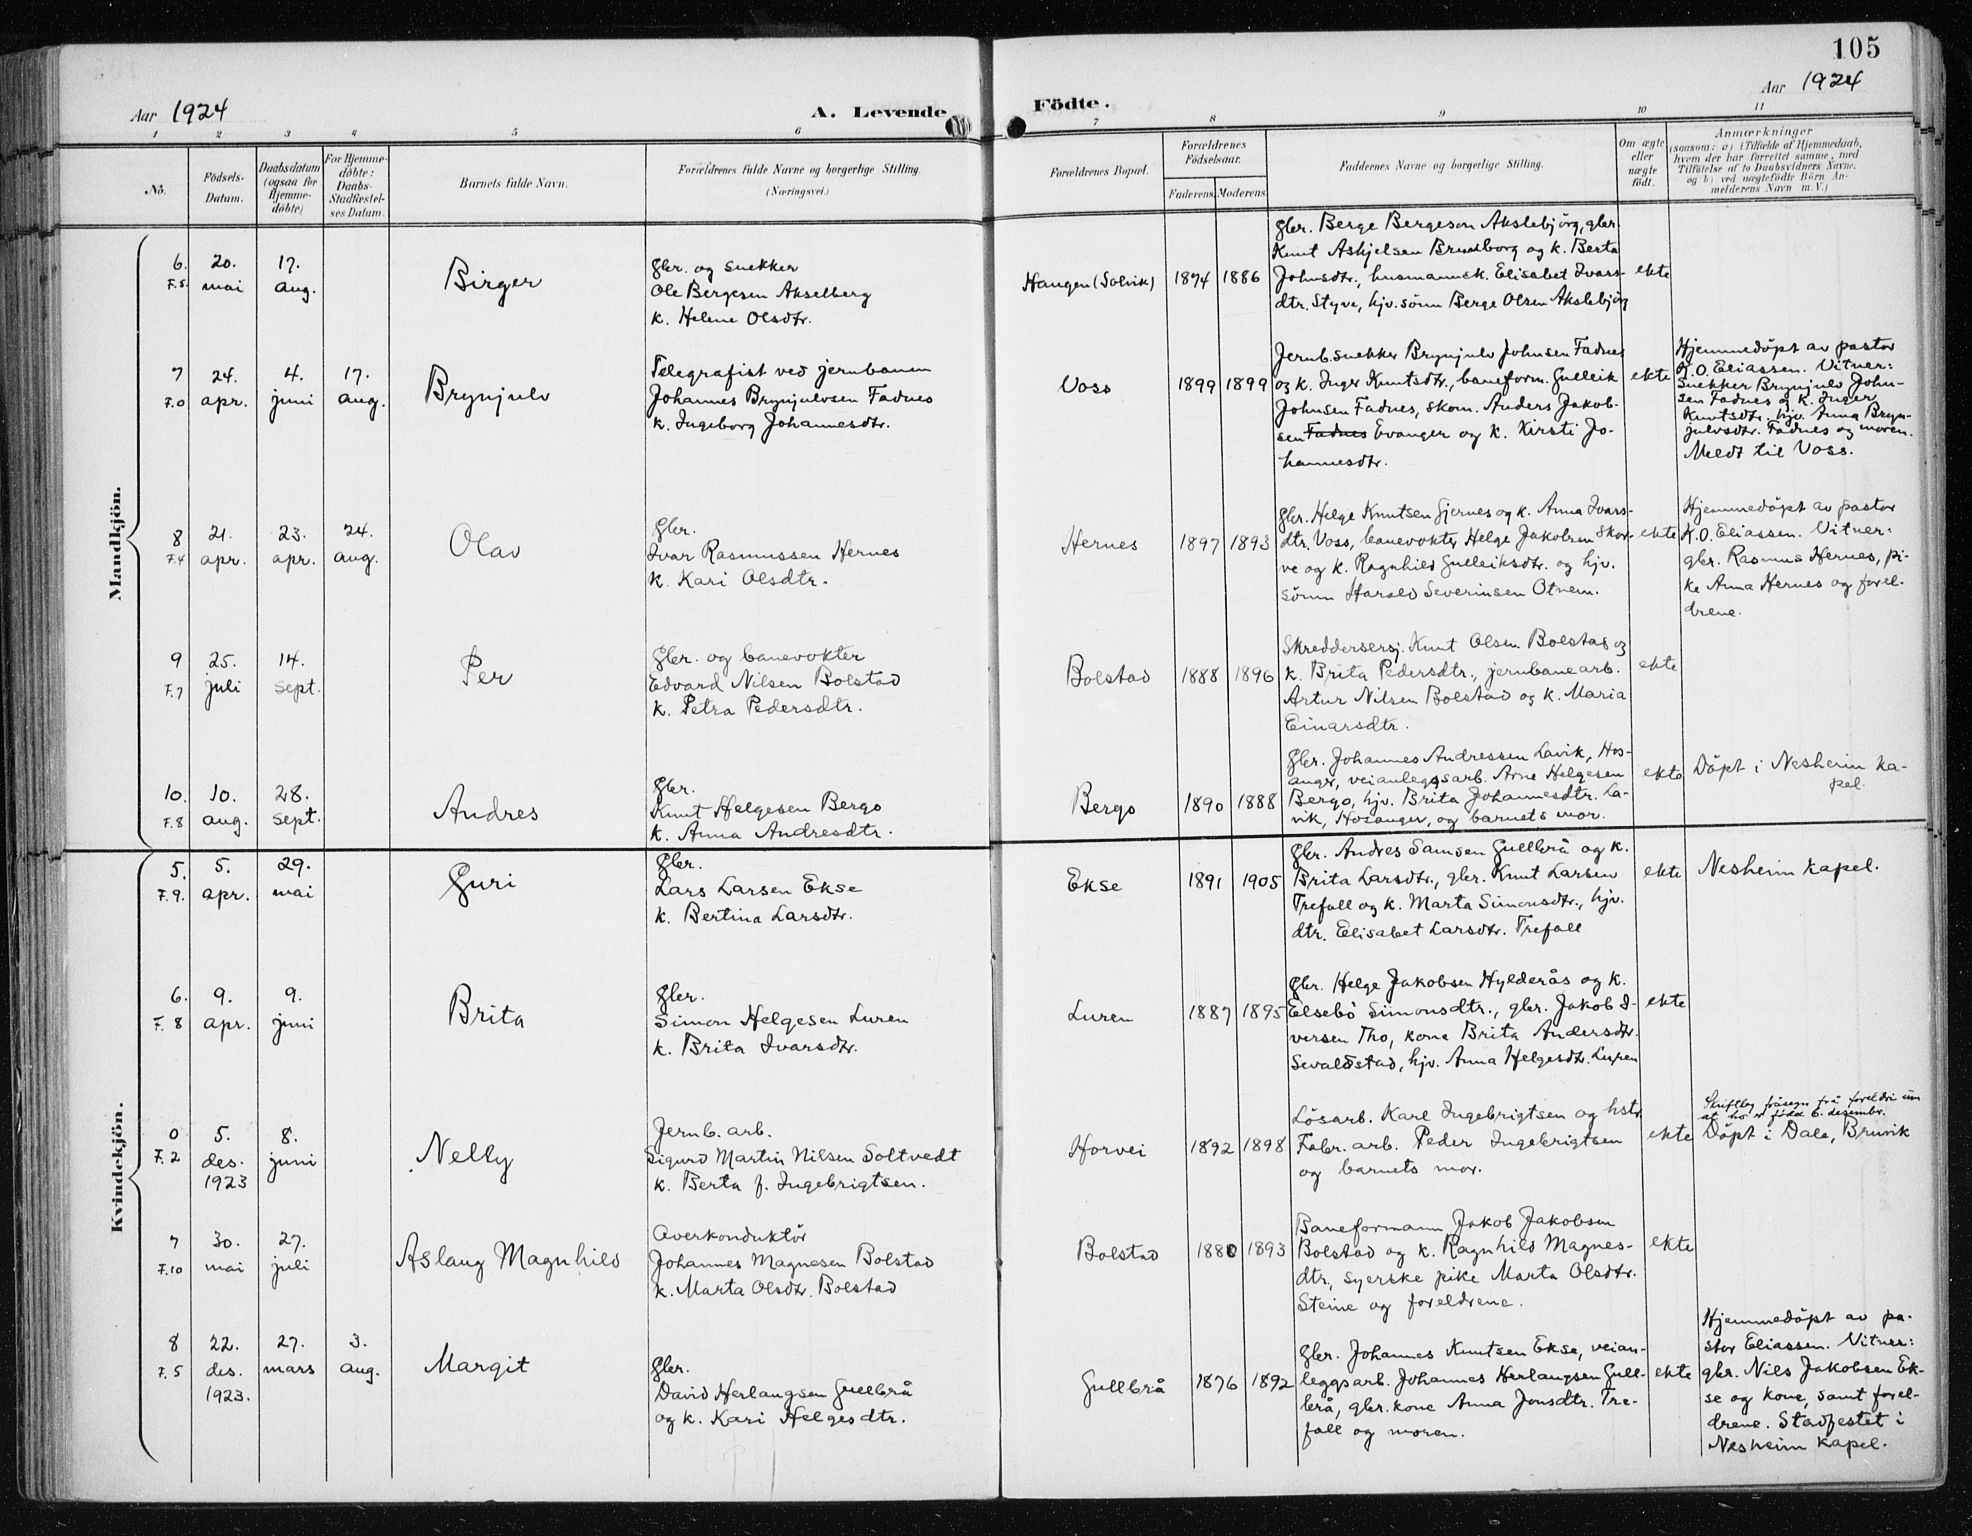 105
Aar 1924
A. Levende
Födte.
Aar 1924
1 2 3 4 5 6 7 8 9 10 11
No.
Födsels-
Datum.
Daabsdatum
(ogsaa for
Hjemme-
döbte)
For Hjemme-
döbte:
Daabs-
Stadfæstel-
ses Datum.
Barnets fulde Navn.
Forældrenes fulde Navne og borgerlige Stilling
(Næringsvei.)
Forældrenes Bopæl.
Forældrenes
Födselsaar.
Faderens Moderens
Faddernes Navne og borgerlige Stilling.
Om ægte
eller
uægte
födt.
Anmærkninger
(saasom: a) i Tilfælde af Hjemmedaab,
hvem der har forrettet samme, med
Tilföielse af to Daabsvidners Navne,
og b) ved uægtefödte Börn An-
melderens Navn m.V.)
Mandkjön.
6.
F.5.
20.
mai
17.
aug.
Birger
Gbr. og snekker
Ole Bergesen Akselberg
k. Helene Olsdtr.
Haugen (Solvik)
1874 1886
gbr. Berge Bergeson Akslebjörg, gbr.
Knut Askjelsen Brudborg og k. Berta
Johnsdtr., husmannsk. Elisabet Ivars-
dtr. Styve, hjv. sönn Berge Olsen Akslebjörg
ekte
7
F.0
24.
apr.
4.
juni
17.
aug.
Brynjulv
Telegrafist ved jernbanen
Johannes Brynjulvsen Fadnes
k. Ingeborg Johannesdtr.
Voss
1899 1899
Jernb.snekker Brynjulv Johnsen Fadnes
og k. Inger Knutsdtr., baneform. Gulleik
Johnsen Fadnes, skom. Anders Jakob-
sen Fadnes Evanger og k. Kirsti Jo-
hannesdtr.
ekte
Hjemmedöpt av pastor
K.O. Eliassen. Vitner:
Snekker Brynjulv John-
sen Fadnes og k. Inger
Knutsdtr. hjv. Anna Bryn-
julvsdtr. Fadnes og moren.
Meldt til Voss.
8
F.4
21.
apr.
23.
apr.
24.
aug.
Olav
Gbr.
Ivar Rasmussen Hernes
k. Kari Olsdtr.
Hernes
1897 1893
Gbr. Helge Knutsen Gjernes og k. Anna Ivars-
dtr. Voss, banevokter Helge Jakobsen Skor-
ve og k. Ragnhild Gulleiksdtr. og hjv.
sönn Harald Severinsen Otnem.
ekte
Hjemmedöpt av pastor
K.O. Eliassen. Vitner:
gbr. Rasmus Hernes, pi-
ke Anna Hernes og forel-
drene.
9
F.7
25.
juli
14.
sept.
Per
Gbr. og banevokter
Edvard Nilsen Bolstad
k. Petra Pedersdtr.
Bolstad
1888 1896
Skreddersersj. Knut Olsen Bolstad og
k. Brita Pedersdtr., jernbanearb.
Artur Nilsen Bolstad og k. Maria
Einarsdtr.
ekte
10.
F.8
10.
aug.
28.
sept.
Andres
Gbr.
Knut Helgesen Bergo
k. Anna Andresdtr.
Bergo
1890 1888
Gbr. Johannes Andressen Lavik, Hos-
anger, veianleggsarb. Arne Helgesen
Bergo, hjv. Brita Johannesdtr. La-
vik, Hosanger, og barnets mor.
ekte
Döpt i Nesheim ka-
pel.
Kvindekjön.
5.
F.9.
5.
apr.
29.
mai
Guri
Gbr.
Lars Larsen Ekse
k. Bertina Larsdtr.
Ekse
1891 1905
Gbr. Andres Samsen Gullbrå og k.
Brita Larsdtr., gbr. Knut Larsen
Trefall og k. Marta Simonsdtr., hjv.
dtr. Elisabet Larsdtr. Trefall
ekte
Nesheim kapel.
6.
F. 8
9.
apr.
9.
juni
Brita
Gbr.
Simon Helgesen Luren
k. Brita Ivarsdtr.
Luren
1887 1895
Gbr. Helge Jakobsen Hylderås og k.
Elsebö Simonsdtr., gbr. Jakob I-
versen Tho, kone Brita Andersdtr.
Sevaldstad, hjv. Anna Helgesdtr. Luren
ekte
0
F.2
5.
des.
1923
8.
juni
Nelly
Jernb. arb.
Sigurd Martin Nilsen Soltvedt
k. Berta f. Ingebrigtsen.
Horvei
1892 1898
Lösarb. Karl Ingebrigtsen og hstr.
Fabr. arb. Peder Ingebrigtsen
og barnets mor.
ekte
Skriftleg fråsegn frå foreldri um
at ho er född 6. desembr.
Döpt i Dale, Bruvik
7
F.10
30.
mai
27.
juli
Aslaug Magnhild
Overkonduktör
Johannes Magnesen Bolstad
k. Marta Olsdtr. Bolstad
Bolstad
1880 1893
Baneformann Jakob Jakobsen
Bolstad og k. Ragnhild Magnes-
dtr, syerske pike Marta Olsdtr.
Steine og foreldrene.
ekte
8
F. 5
22.
des.
1923.
27.
mars
3.
aug.
Margit
Gbr.
David Herlaugsen Gullbrå
og k. Kari Helgesdtr.
Gullbrå
1876 1892
Gbr. Johannes Knutsen Ekse, veian-
leggsarb. Johannes Herlaugsen Gull-
brå, gbr. kone Anna Jonsdtr. Tre-
fall og moren.
ekte
Hjemmedöpt av pa-
stor Eliassen. Vitner:
gbr. Nils Jakobsen Ek-
se og kone, samt forel-
drene. Stadfestet i
Nesheim kapel.